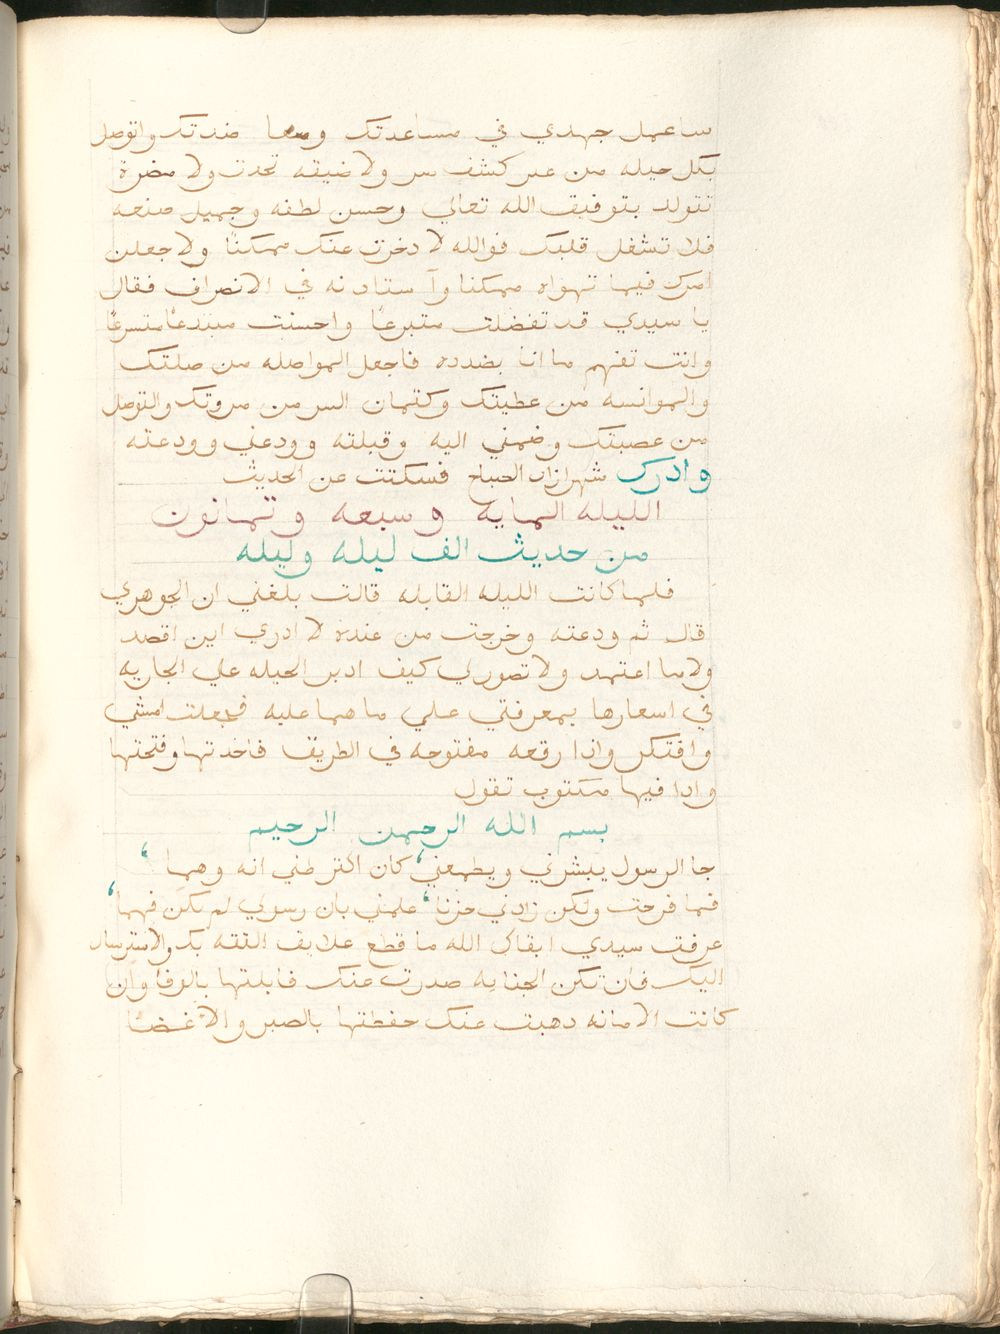 ساعمل جهدي في مساعدتك ومعا ضدتك واتوصل
بكل حيله من غير كشف سر ولا ضيقه تحدث ولا مضرة
تتولد بتوفيق الله تعالي وحسن لطفه وجميل صنعه
فلا تشغل قلبك فوالله لا دخرت عنك ممكنا ولا جعلن
امرك فيما تهواه ممكنا وآ ستاد نه في الانصراف فقال
يا سيدي قد تفضلت متبرعًا واحسنت مبتدعًا متسرعًا
وانت تفهم ما انا بضدده فاجعل المواصله من صلتك
والموانسه من عطيتك وكتمان السر من مروتك والتوصل
من عصبتك وضمني اليه وقبلته وودعني وودعته
وادرك شهرازاد الصباح فسكتت عن الحديث
الليله المايه وسبعه وتمانون
من حديث الف ليله وليله
فلما كانت الليله القابله قالت بلغني ان الجوهري
قال ثم ودعته وخرجت من عنده لا ادري اين اقصد
ولا ما اعتمد ولا تصور لي كيف ادبر الحيله علي الجاريه
في اسعارها بمعرفتي علي ما هما عليه فجعلت امشي
وافتكر واذا رقعه مفتوحه في الطريق فاخدتها وفتحتها
وادا فيها مكتوب تقول
بسم الله الرحمن الرحيم
جا الرسول يبشرني ويطمعني كان اكتر ظني انه وهما
فما فرحت ولكن زادني حزنا علمني بان رسولي لم يكن فهما
عرفت سيدي ابقاك الله ما قطع علايق الثقه بك والاسترسال
اليك فان تكن الجنايه صدرت عنك قابلتها بالوفا وان
كانت الامانه دهبت عنك حفظتها بالصبر والاغضا